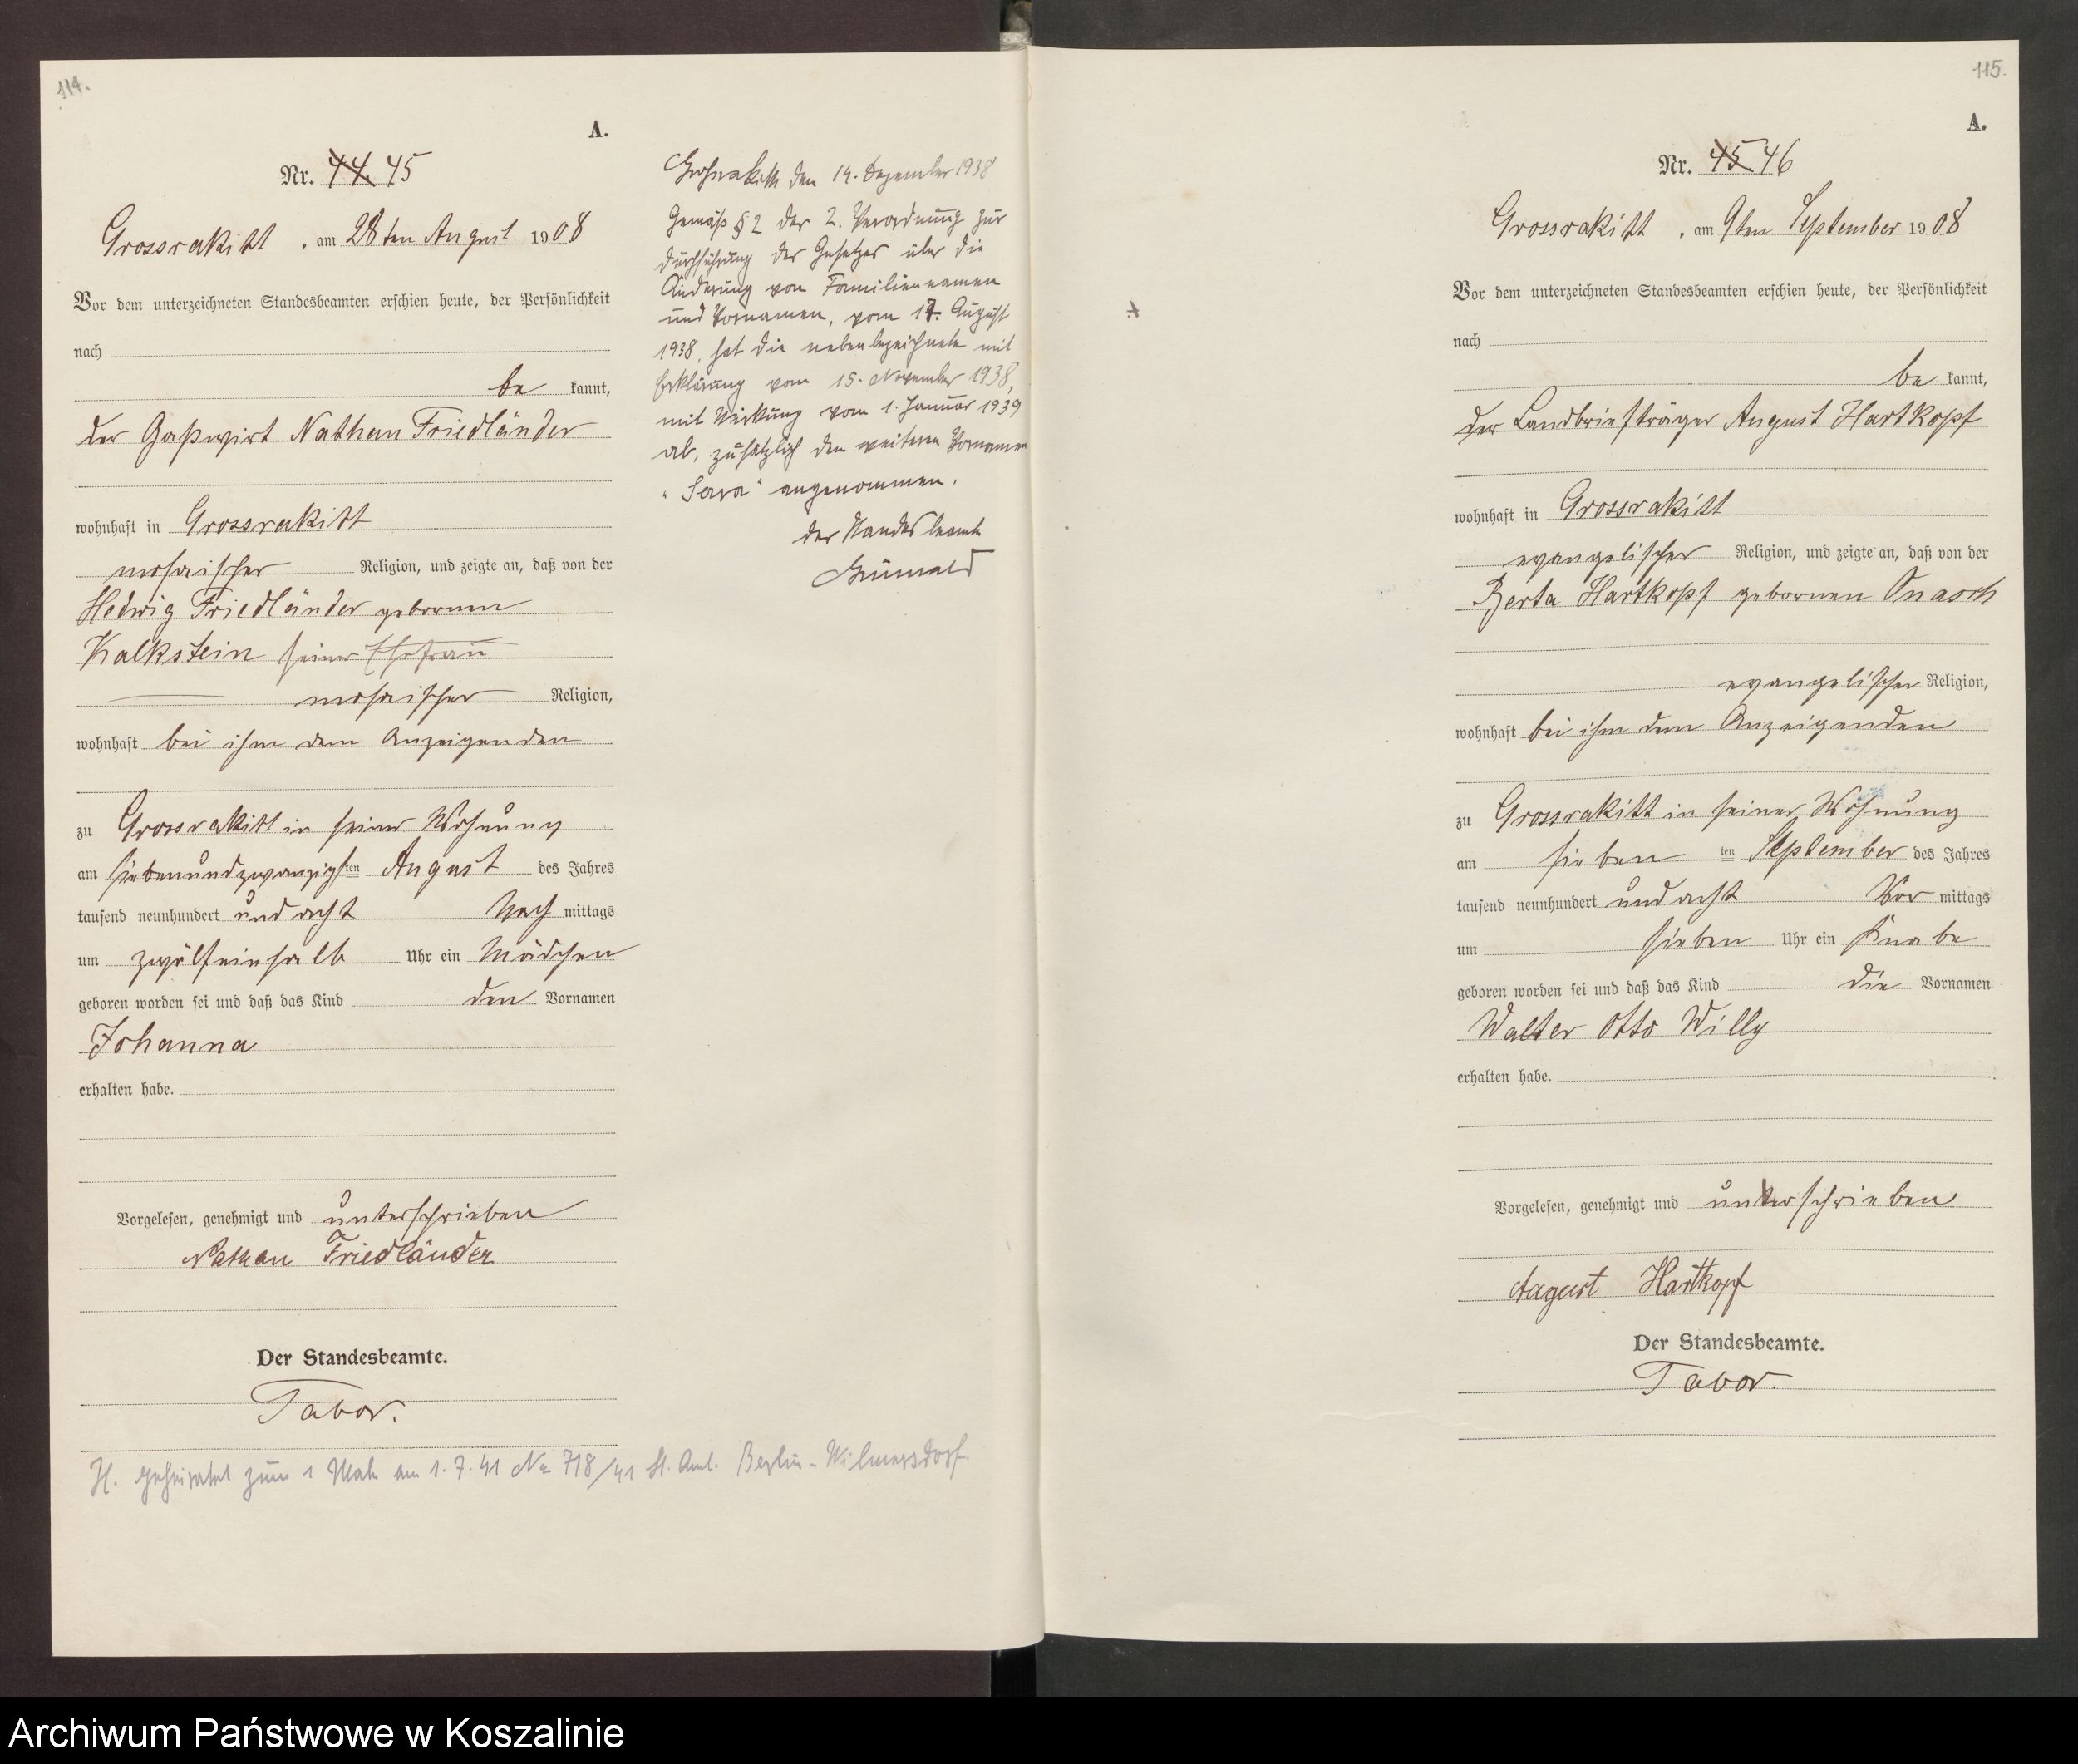 114.
A.
Nr. 44. 45
Grossrakitt, am 28ten August 1908
Vor dem unterzeichneten Standesbeamten erschien heute, der Persönlichkeit
nach
be kannt,
der Gastwirt Nathan Friedländer
wohnhaft in Grossrakitt
mosaischer Religion, und zeigte an, daß von der
Hedwig Friedländer geborenen
Kalkstein seiner Ehefrau
mosaischer Religion,
wohnhaft bei ihm dem Anzeigenden
zu Grossrakitt in seiner Wohnung
am siebenundzwanzigsten August des Jahres
tausend neunhundert und acht Nach mittags
um zwölfeinhalb Uhr ein Mädchen
geboren worden sei und daß das Kind den Vornamen
Johanna
erhalten habe.
Vorgelesen, genehmigt und unterschrieben
Nathan Friedländer
Der Standesbeamte.
Tabor.
H. geheiratet zum 1 Male am 1.7.41 No 718/41 St. Amt. Berlin-Wilmersdorf
Großrakitt den 14. Dezember 1938
Gemäß § 2 der 2. Verordnung zur
Durchführung des Gesetzes über die
Änderung von Familiennamen
und Vornamen, vom 17. August
1938, hat die nebenbezeichnete mit
Erklärung vom 15. November 1938,
mit Wirkung vom 1. Januar 1939
ab, zusätzlich den weiteren Vornamen
"Sara" angenommen.
Der Standesbeamte
Grünwald
115.
A.
Nr. 45 46
Grossrakitt, am 9ten September 1908
Vor dem unterzeichneten Standesbeamten erschien heute, der Persönlichkeit
nach
be kannt,
der Landbriefträger August Hartkopf
wohnhaft in Grossrakitt
evangelischer Religion, und zeigte an, daß von der
Berta Hartkopf geborenen Onasch
evangelischer Religion,
wohnhaft bei ihm dem Anzeigenden
zu Grossrakitt in seiner Wohnung
am sieben ten September des Jahres
tausend neunhundert und acht Vor mittags
um sieben Uhr ein Knabe
geboren worden sei und daß das Kind die Vornamen
Walter Otto Willy
erhalten habe.
Vorgelesen, genehmigt und unterschrieben
August Hartkopf
Der Standesbeamte.
Tabor.
Archiwum Państwowe w Koszalinie